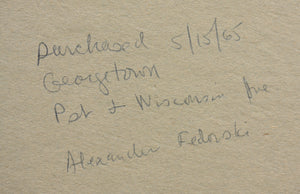 purchased 5/15/65
Georgetown
P St & Wisconsin Ave
Alexander Fedorski